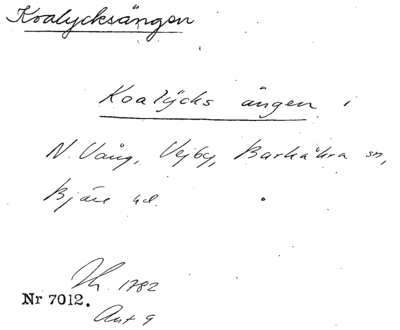 Koalycksängen
Koalÿcks ängen i
N. Vång, Vejby, Barkåkra sn,
Bjäre hd.
Nr 7012.
1782
Akt 9